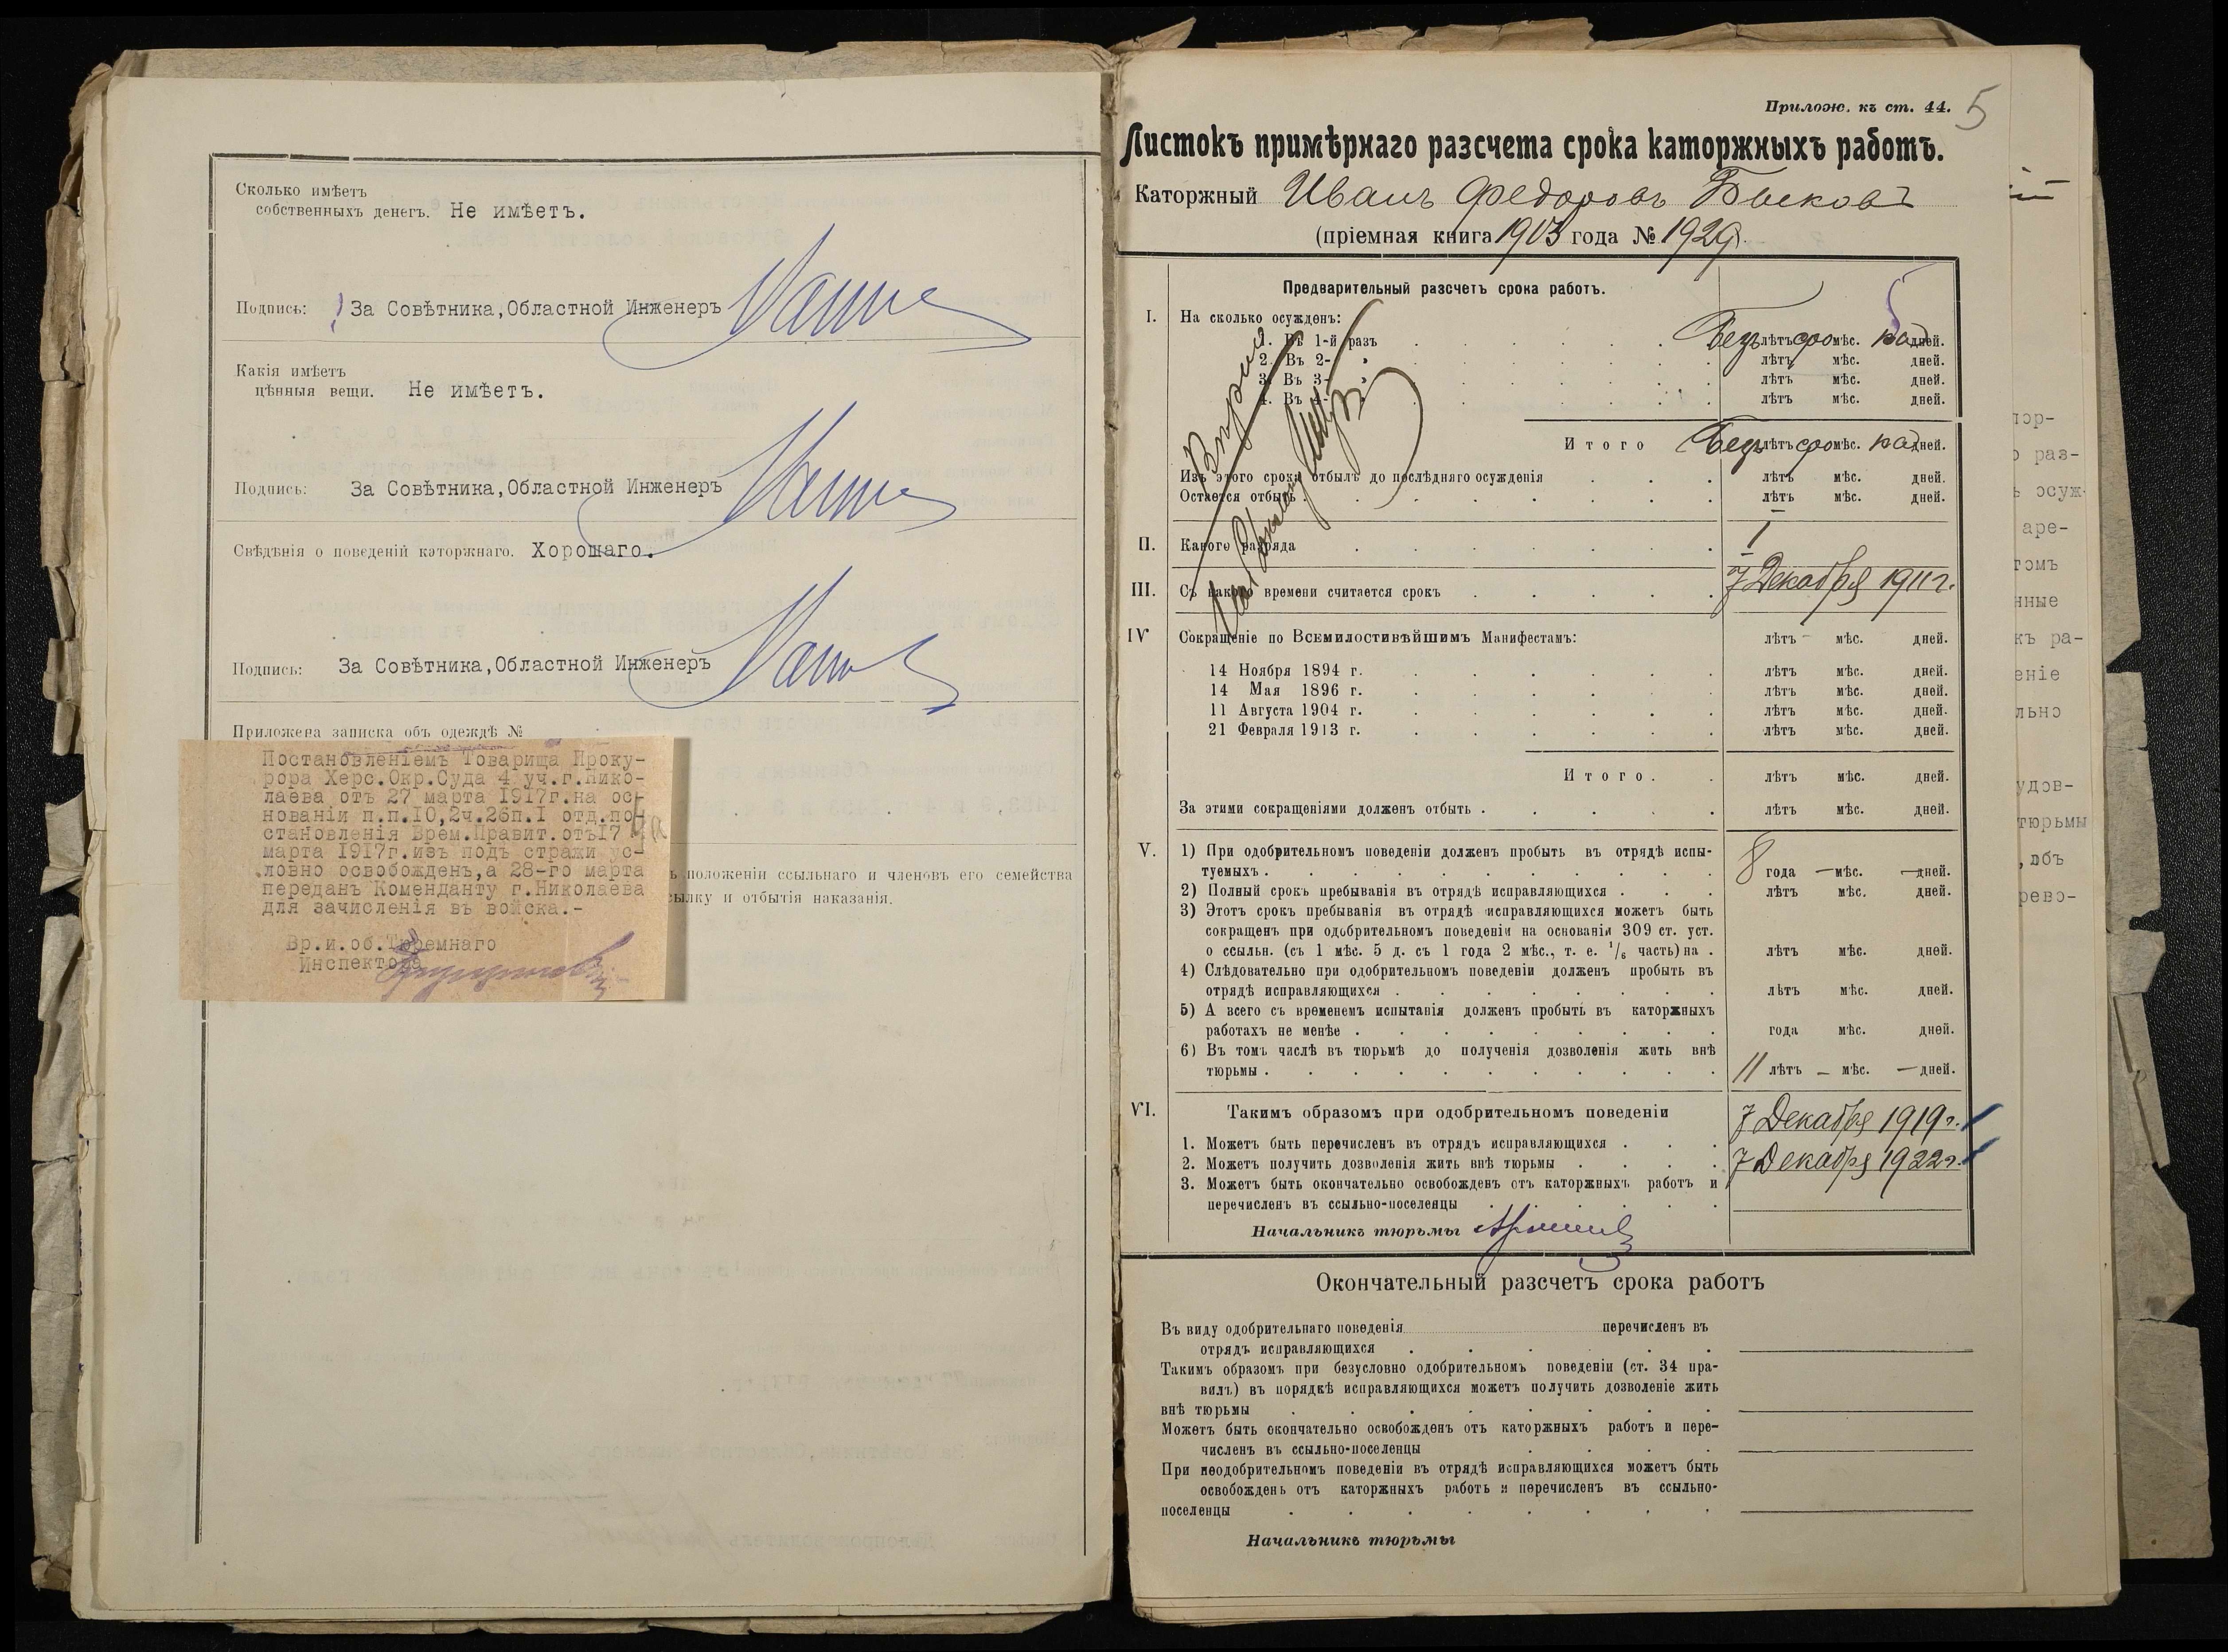 Сколько имѣетъ
собственныхъ денегъ. Не имѣетъ.
Подпись: За Совѣтника,Областной Инженеръ
Какія имѣетъ
цѣнныя вещи. Не имѣетъ.
Подпись: За Совѣтника,Областной Инженеръ
Свѣдѣнія о поведеній каторжнаго. Хорошаго.
Подпись: За Совѣтника,Областной Инженеръ
Приложена записка объ одеждѣ №
Постановленіемъ Товарища Проку-
рора Херс.Окр.Суда 4 уч.г.Нико-
лаева отъ 27 марта 1917г.на ос-
нованіи п.п.10,2ч.26п.I отд.по-
становленія Врем.Правит.отъ17
марта 1917г.изъ подъ стражи ус-
ловно освобожденъ,а 28-го марта
переданъ Коменданту г.Николаева
для зачисленія въ войска.-
Вр.и.об.Тюремнаго
Инспектора
положеніи ссыльнаго и членовъ его семейства
сылку и отбытія наказанія.
Прилож. къ ст. 44. 5
Листокъ примѣрнаго разсчета срока каторжныхъ работъ.
Каторжный Иванъ Федоровъ Быковъ
(пріемная книга 1903 года № 1929).
Предварительный разсчетъ срока работъ.
I. На сколько осужденъ:
1. Въ 1-й разъ Безъ лѣтъ сро мѣс. ка дней.
2. Въ 2- » лѣтъ мѣс. дней.
3. Въ 3- » лѣтъ мѣс. дней.
4. Въ 4- » лѣтъ мѣс. дней.
Итого Безъ лѣтъ сро мѣс. ка дней.
Изъ этого срока отбылъ до послѣдняго осужденія лѣтъ мѣс. дней.
Остается отбыть лѣтъ мѣс. дней.
II. Какого разряда I
III. Съ какого времени считается срокъ 7 Декабря 1911 г.
IV Сокращеніе по Всемилостивѣйшимъ Манифестамъ: лѣтъ мѣс. дней.
14 Ноября 1894 г. лѣтъ мѣс. дней.
14 Мая 1896 г. лѣтъ мѣс. дней.
11 Августа 1904 г. лѣтъ мѣс. дней.
21 Февраля 1913 г. лѣтъ мѣс. дней.
Итого. лѣтъ мѣс. дней.
За этими сокращеніями долженъ отбыть . лѣтъ мѣс. дней.
V. 1) При одобрительномъ поведеніи долженъ пробыть въ отрядѣ испы-
туемыхъ . 8 года — мѣс. — дней.
2) Полный срокъ пребыванія въ отрядѣ исправляющихся . лѣтъ мѣс. дней.
3) Этотъ срокъ пребыванія въ отрядѣ исправляющихся можетъ быть
сокращенъ при одобрительномъ поведеніи на основаніи 309 ст. уст.
о ссыльн. (съ 1 мѣс. 5 д. съ 1 года 2 мѣс., т. е. 1/6 часть) на . лѣтъ мѣс. дней.
4) Слѣдовательно при одобрительномъ поведеніи долженъ пробыть въ
отрядѣ исправляющихся . лѣтъ мѣс. дней.
5) А всего съ временемъ испытанія долженъ пробыть въ каторжныхъ
работахъ не менѣе . года мѣс. дней.
6) Въ томъ числѣ въ тюрьмѣ до полученія дозволенія жить внѣ
тюрьмы . 11 лѣтъ — мѣс. — дней.
VI. Такимъ образомъ при одобрительномъ поведеніи
1. Можетъ быть перечисленъ въ отрядъ исправляющихся . 7 Декабря 1919 г.
2. Можетъ получить дозволенія жить внѣ тюрьмы . 7 Декабря 1922 г.
3. Можетъ быть окончательно освобожденъ отъ каторжныхъ работъ и
перечисленъ въ ссыльно-поселенцы
Начальникъ тюрьмы
Окончательный разсчетъ срока работъ
Въ виду одобрительнаго поведенія перечисленъ въ
отрядъ исправляющихся
Такимъ образомъ при безусловно одобрительномъ поведеніи (ст. 34 пра-
вилъ) въ порядкѣ исправляющихся можетъ получить дозволеніе жить
внѣ тюрьмы
Можетъ быть окончательно освобожденъ отъ каторжныхъ работъ и пере-
численъ въ ссыльно-поселенцы
При неодобрительномъ поведеніи въ отрядѣ исправляющихся можетъ быть
освобожденъ отъ каторжныхъ работъ и перечисленъ въ ссыльно-
поселенцы
Начальникъ тюрьмы
пор-
раз-
осуж-
аре-
томъ
нные
къ ра-
еніе
льно
удов-
тюрьмы
,объ
рево-